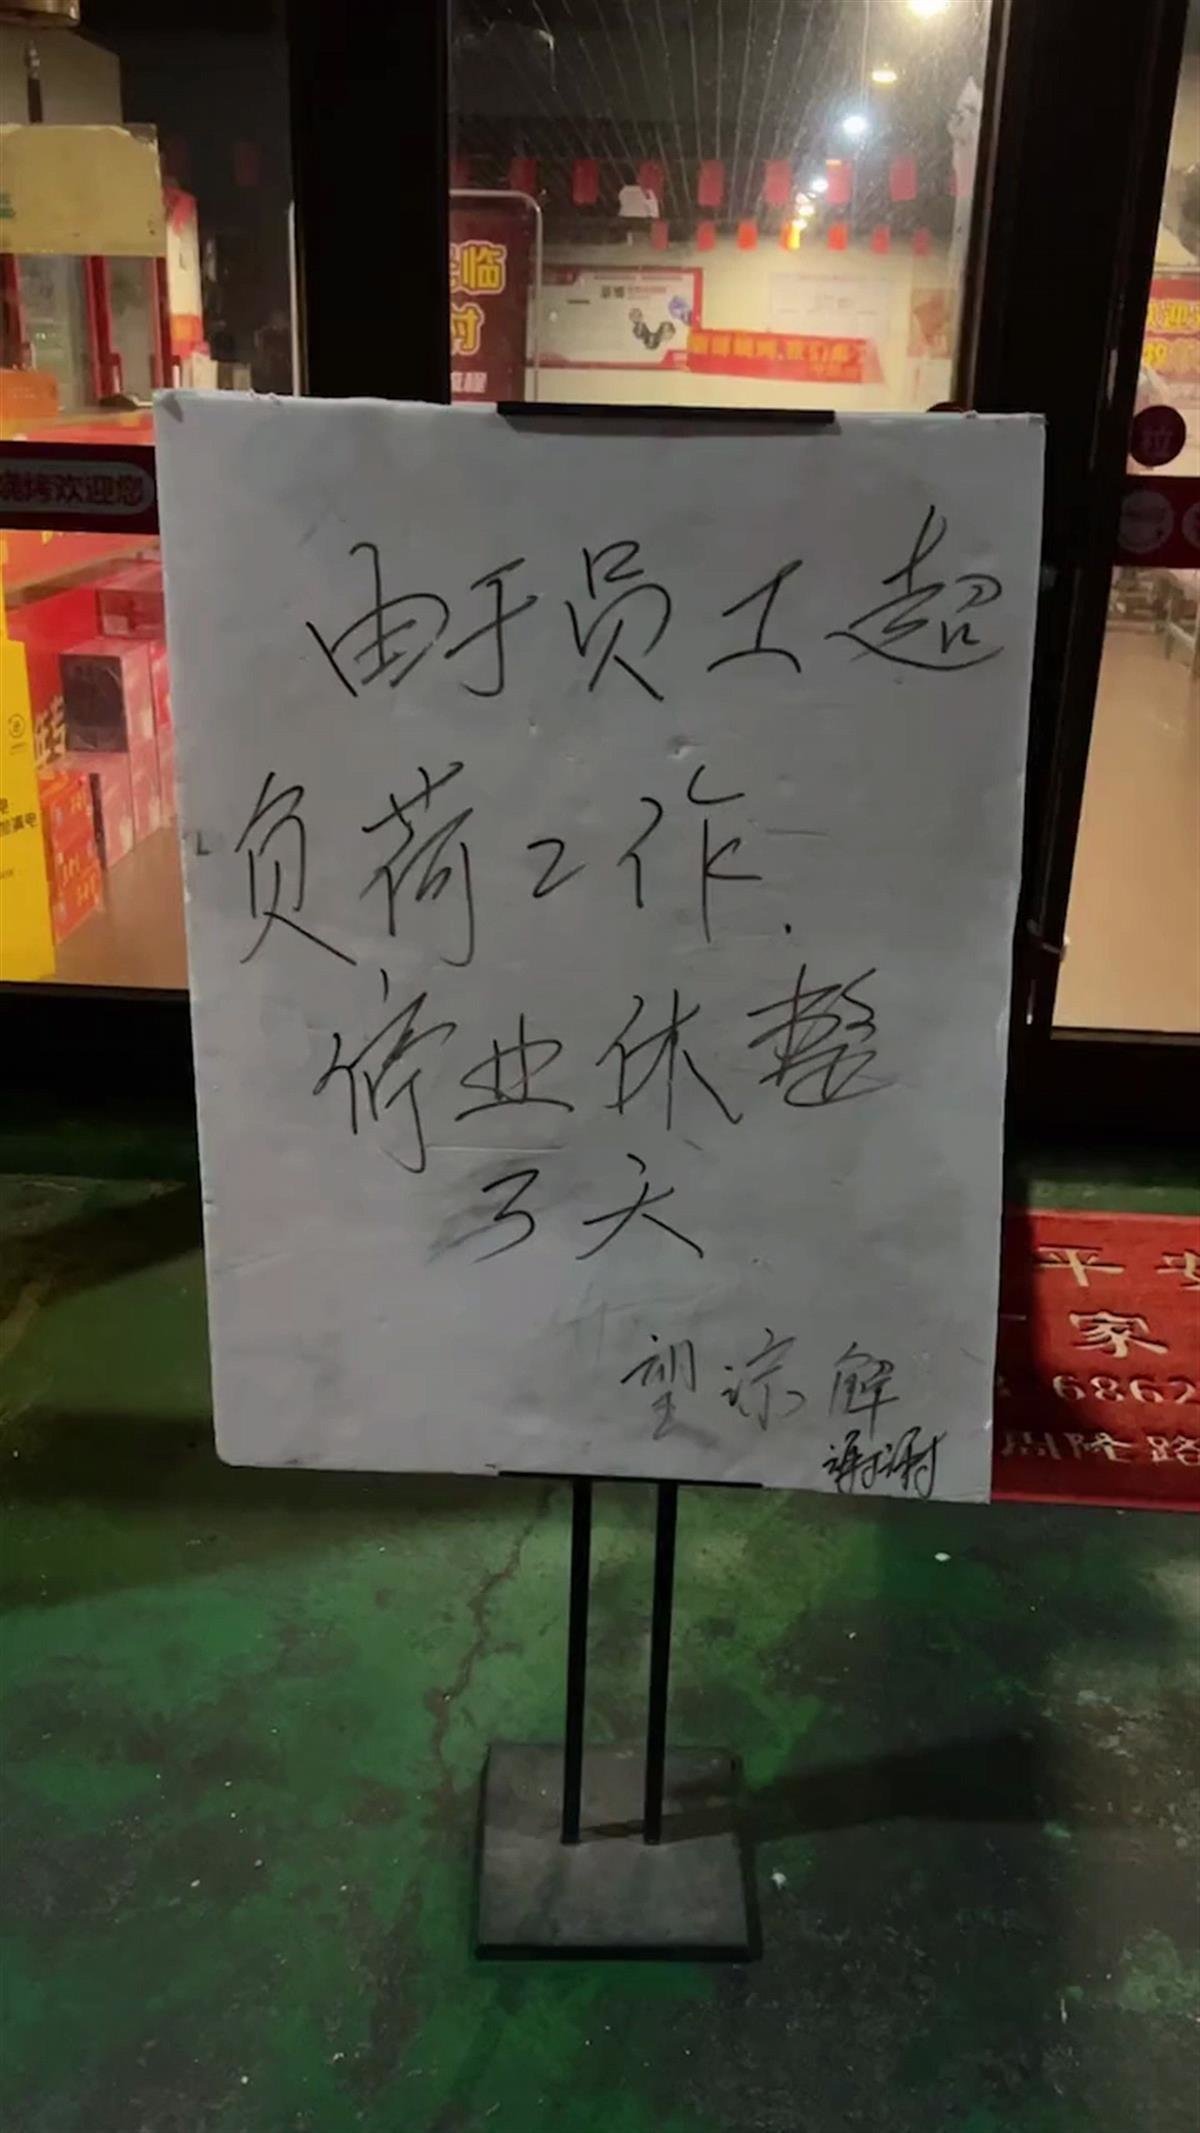 临
村
烧烤欢迎您
拉
由于员工超
负荷工作.
停业休整
3天
望谅解
谢谢
平安
家
6862
周隆路